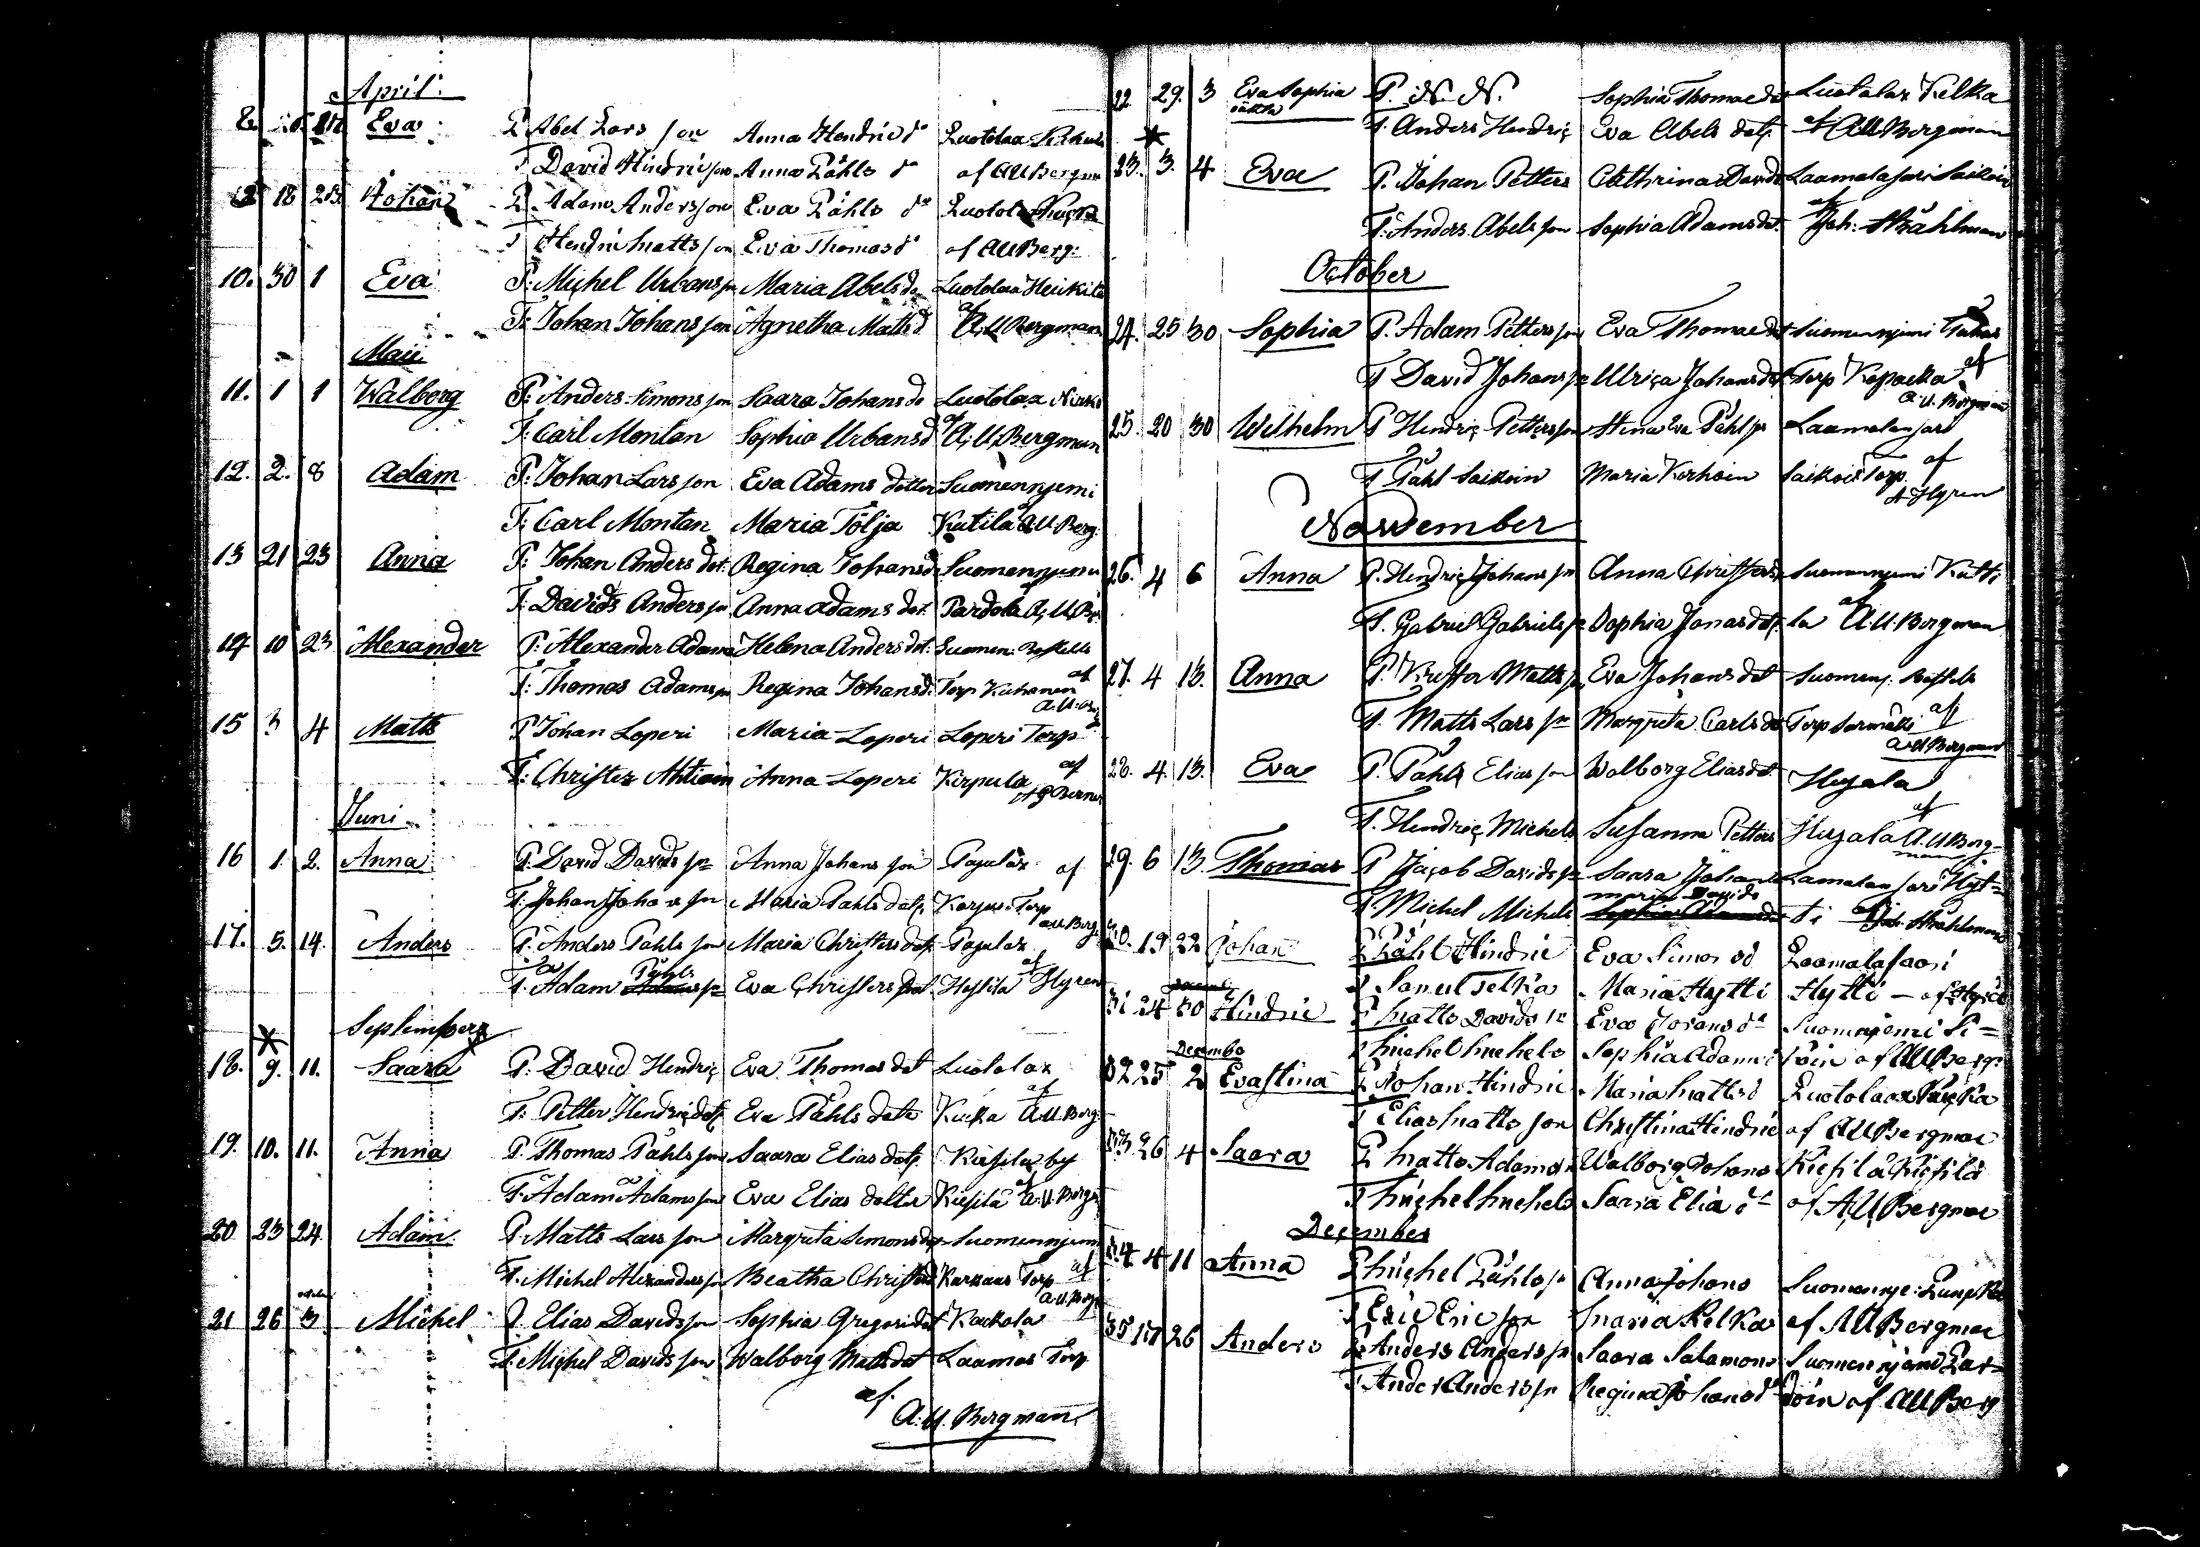 April
Eva P. Abel Lars son Anna Hendric dr Luotolax
T David Hindricson Anna Påhls dr af AUBergman
18 Johan P. Adam Andersson Eva Påhls dr Luotola Kucka
T Hendric Matts son Eva Thomas dr af AUBerg:
10. 30 1 Eva P: Michel Urbans son Maria Abels do Luotolax Heickilä
T: Johan Johans son Agnetha Matts d af A.U Bergman
Maii
11. 1 1 Walborg P: Anders Simons son Saara Johans do Luotolax
T: Carl Montan Sophia Urbans d af A.U.Bergman
12. 2. 8 Adam P: Johan Lars son Eva Adams dotter Suomennjemi
T: Carl Montan Maria Tölja Kutila A.U.Berg:
13 21 23 Anna P: Johan Anders dot. Regina Johans d Suomennjemi
T: Davids Anders son Anna Adams dot. Pardola A.U.
14 10 23 Alexander P: Alexander Adams Helena Anders dot: Suomen:
T: Thomas Adams son Regina Johans d. Torp Kuhanen af A.U.
15 3 4 Matts P Johan Loperi Maria Loperi Loperi Torp
T: Christer Ahtiain Anna Loperi Kirpula af
Juni
16 1. 2. Anna P. David Davids son Anna Johans son Papulax af
T. Johan Johans son Maria Påhls dotr. Torp A.U.Berg.
17. 5. 14. Anders P. Anders Påhls son Maria Christers dotr. Papulax
T. Adam Påhls son Eva Christers dot. Heslila af Hyren
September
18. 9. 11. Saara P. David Hendric Eva Thomas dot Luotolax
T. Petter Hendric dotr. Eva Påhls dotr Kucka af A.U.Berg
19. 10. 11. Anna P. Thomas Påhls son Saara Elias dotr Kiesilä by
T. Adam Adams son Eva Elias dotter Kiesilä af A.U.Bergm
20 23 24 Adam P. Matts Lars son Margreta Simons dr Suomennjemi
T. Michel Alexanders son Beatha Christ Karkaus Torp af A.U.Berg
october
21 26 3 Michel P. Elias Davids son Sophia Gregori dot Kackola
T. Michel Davids son Walborg Matts dot Laamas Torp
af
A.U.Bergman
22 29. 3 Eva Sophia P. N. N. Sophia Thomae do Luotolax Kelka
oäkta T. Anders Hendric Eva Abels dotr. af A.U.Bergman
23. 3. 4. Eva P. Johan Petters Cathrina Davids Laamalasari Saikoin
T. Anders Abels son Sophia Adams dot. af Joh: Ståhlman
October
24. 25 30 Sophia P. Adam Petters son Eva Thomae dot Suomennjemi
T David Johans son Ulrica Johans dot Torp Kopacka af A.U.Bergman
25. 20 30 Wilhelm P Hendric Petters son Stina Eva Påhls son Laamalansari
T Påhl Saikoin Maria Korhoin Saikoin Torp. af A Hyren
November
26. 4 6 Anna P. Hendric Johans son Anna Christers Suomennjemi Kutti
T. Gabriel Gabriels son Sophia Jonas dotr. la af A.U.Bergman
27. 4 13. Anna P. Kristfor Matts son Eva Johans dot Suomenj.
T. Matts Lars son Margreta Carls do Torp af A.U.Bergman
28. 4. 13. Eva P. Påhl Elias son Walborg Elias dot. Huyala
T. Hendric Michels Susanna Petters Huyala af A.U.Berg-
man
29. 6 13. Thomas P Jacob Davids son Saara Johan Lamalan sari Hyt=
T. Michel Michels Maria Davids ti af Joh. Ståhlman
30. 19 22 Johan P Påhl Hindric Eva Simos do Laamalasaari
T Samul Telkä Maria Hytti Hytti - af
31 24 30 Hindric P Matts Davids sn Eva Johans dr Suomnjemi Si=
T Michel Michels Sophia Adams join af AUBerg:
Decembr
32 25 2 Evastina P Johan Hindric Maria Matts d Luotolax Kucka
T Elias Matts son Christina Hindric af AUBergman
33 26 4 Saara P Matts Adams Walborg Johans Kiesilä Kiesilä
T Michel Michels Saara Elia dr af A.U.Bergman
December
34 4 11 Anna P Michel Påhls sn Anna Johans Suomennje:
T Eric Eric son Maria Kelka af AUBergman
35 17 26 Anders P Anders Anders sn Saara Salamons Suomennjemi Par=
T Anders Anders sn Regina Johans dr doin af AUBerg